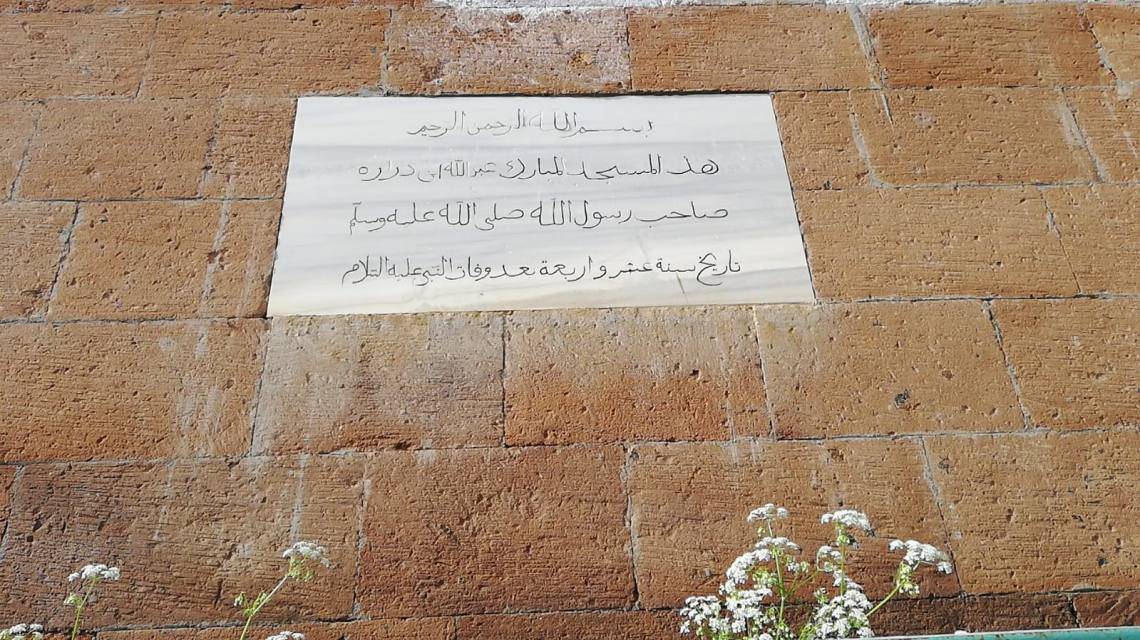 بسم الله الرحمن الرحيم
هذ المسجد المبارك عبد الله ابی دراره
صاحب رسول الله صلى الله عليه وسلّم
تاريخ سنة عشر و اربعة بعد وفات النبي عليه السلام